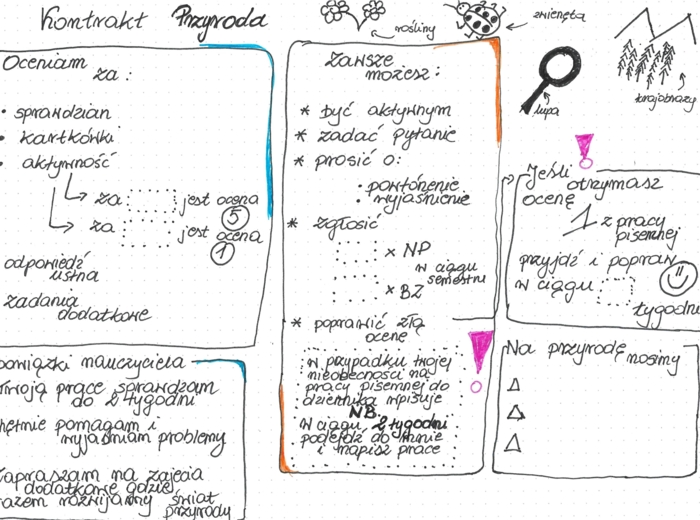 Kontrakt Przyroda
rośliny
zwierzęta
lupa
krajobrazy
Oceniam
za:
• sprawdzian
• kartkówki
• aktywność
za jest ocena
5
za jest ocena
1
odpowiedź
ustna
zadania
dodatkowe
Zawsze
możesz:
* być aktywnym
* zadać pytanie
* prosić o:
• powtórzenie
• wyjaśnienie
* zgłosić
x NP
w ciągu
semestru
x BZ
* poprawić złą
ocenę
w przypadku twojej
nieobecności na
pracy pisemnej do
dziennika wpisuję
NB.
W ciągu 2 tygodni
podejdź do mnie
i napisz pracę
Jeśli
otrzymasz
ocenę
1 z pracy
pisemnej
przyjdź i popraw
w ciągu
tygodni
Na przyrodę nosimy
obowiązki nauczyciela
Twoją pracę sprawdzam
do 2 tygodni
chętnie pomagam i
wyjaśniam problemy
Zapraszam na zajęcia
dodatkowe gdzie
razem rozwijamy świat
przyrody